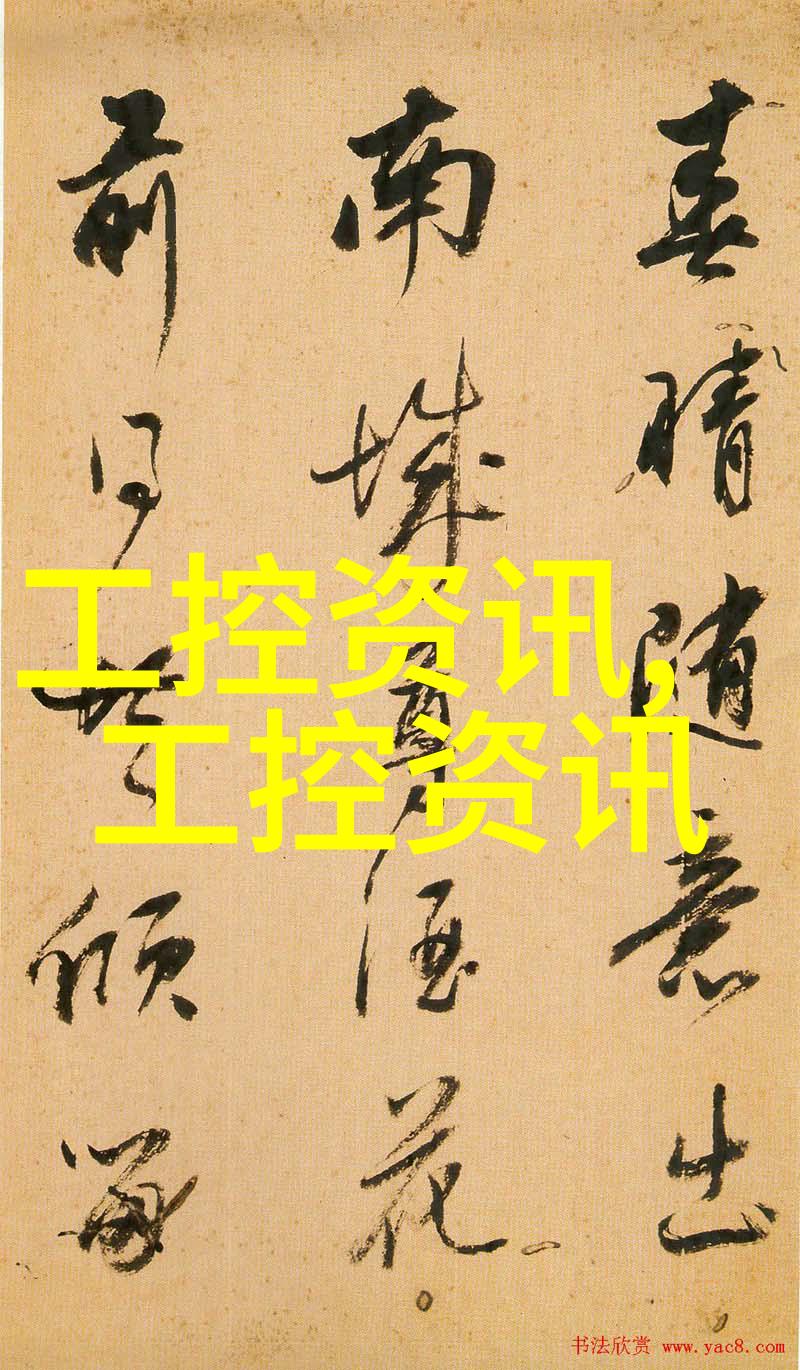 春晴随意出
南城尊酒花
前共傾
工控资讯,
工控资讯
书法欣赏 www.yac8.com